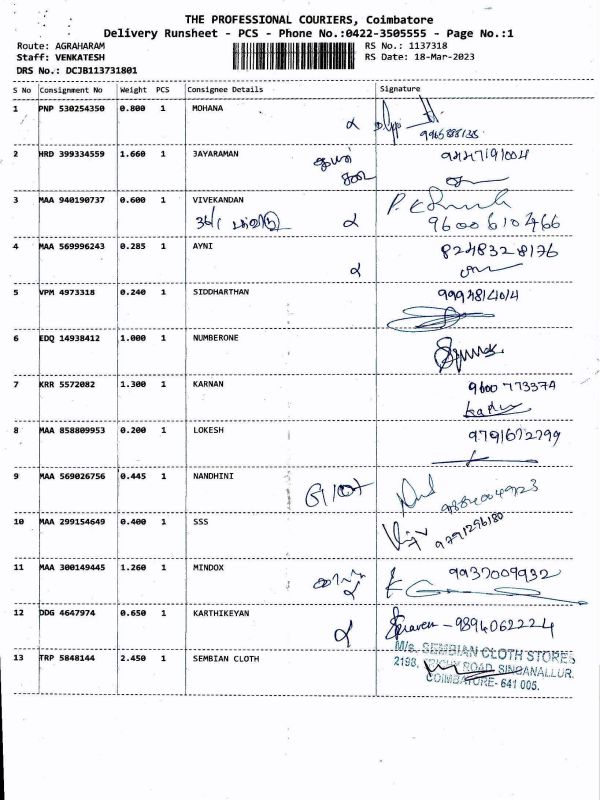 THE PROFESSIONAL COURIERS, Coimbatore
Delivery Runsheet - PCS - Phone No.:0422-3505555 - Page No.:1
Route: AGRAHARAM RS No.: 1137318
Staff: VENKATESH RS Date: 18-Mar-2023
DRS No.: DCJB113731801
S No Consignment No Weight PCS Consignee Details Signature
1 PNP 530254350 0.800 1 MOHANA
2 HRD 399334559 1.660 1 JAYARAMAN
3 MAA 940190737 0.600 1 VIVEKANDAN
9600610466
4 MAA 569996243 0.285 1 AYNI 8248328176
5 VPM 4973318 0.240 1 SIDDHARTHAN
6 EDQ 14938412 1.000 1 NUMBERONE
7 KRR 5572082 1.300 1 KARNAN 9600 773374
8 MAA 858809953 0.200 1 LOKESH 9791672799
9 MAA 569026756 0.445 1 NANDHINI
10 MAA 299154649 0.400 1 SSS 9791296180
11 MAA 300149445 1.260 1 MINDOX 9937009932
12 DDG 4647974 0.650 1 KARTHIKEYAN - 9894062224
13 TRP 5848144 2.450 1 SEMBIAN CLOTH
M/s. SEMBIAN CLOTH STORES
2198, TRICHY ROAD, SINGANALLUR.
COIMBATORE- 641 005.